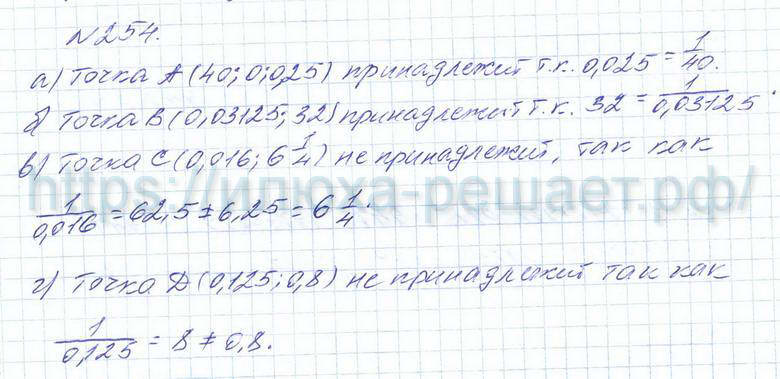 №254.
а) Точка A (40; 0; 0,25) принадлежит т.к. 0,025 = 1/40.
б) Точка B (0,03125; 32) принадлежит т.к. 32 = 1/0,03125.
в) Точка C (0,016; 6 1/4) не принадлежит, так как
https://илюха-решает.рф/
1/0,016 = 62,5 ≠ 6,25 = 6 1/4.
г) Точка D (0,125; 0,8) не принадлежит так как
1/0,125 = 8 ≠ 0,8.